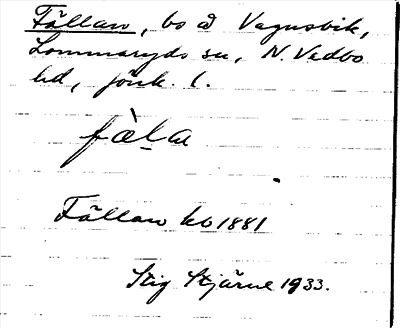 Fällan, bo å Vagnsvik,
Lommaryds sn, N. Vedbo
hd, Jönk. l.
fàl̲a
Fällan kb 1881
Stig Stjärne 1933.